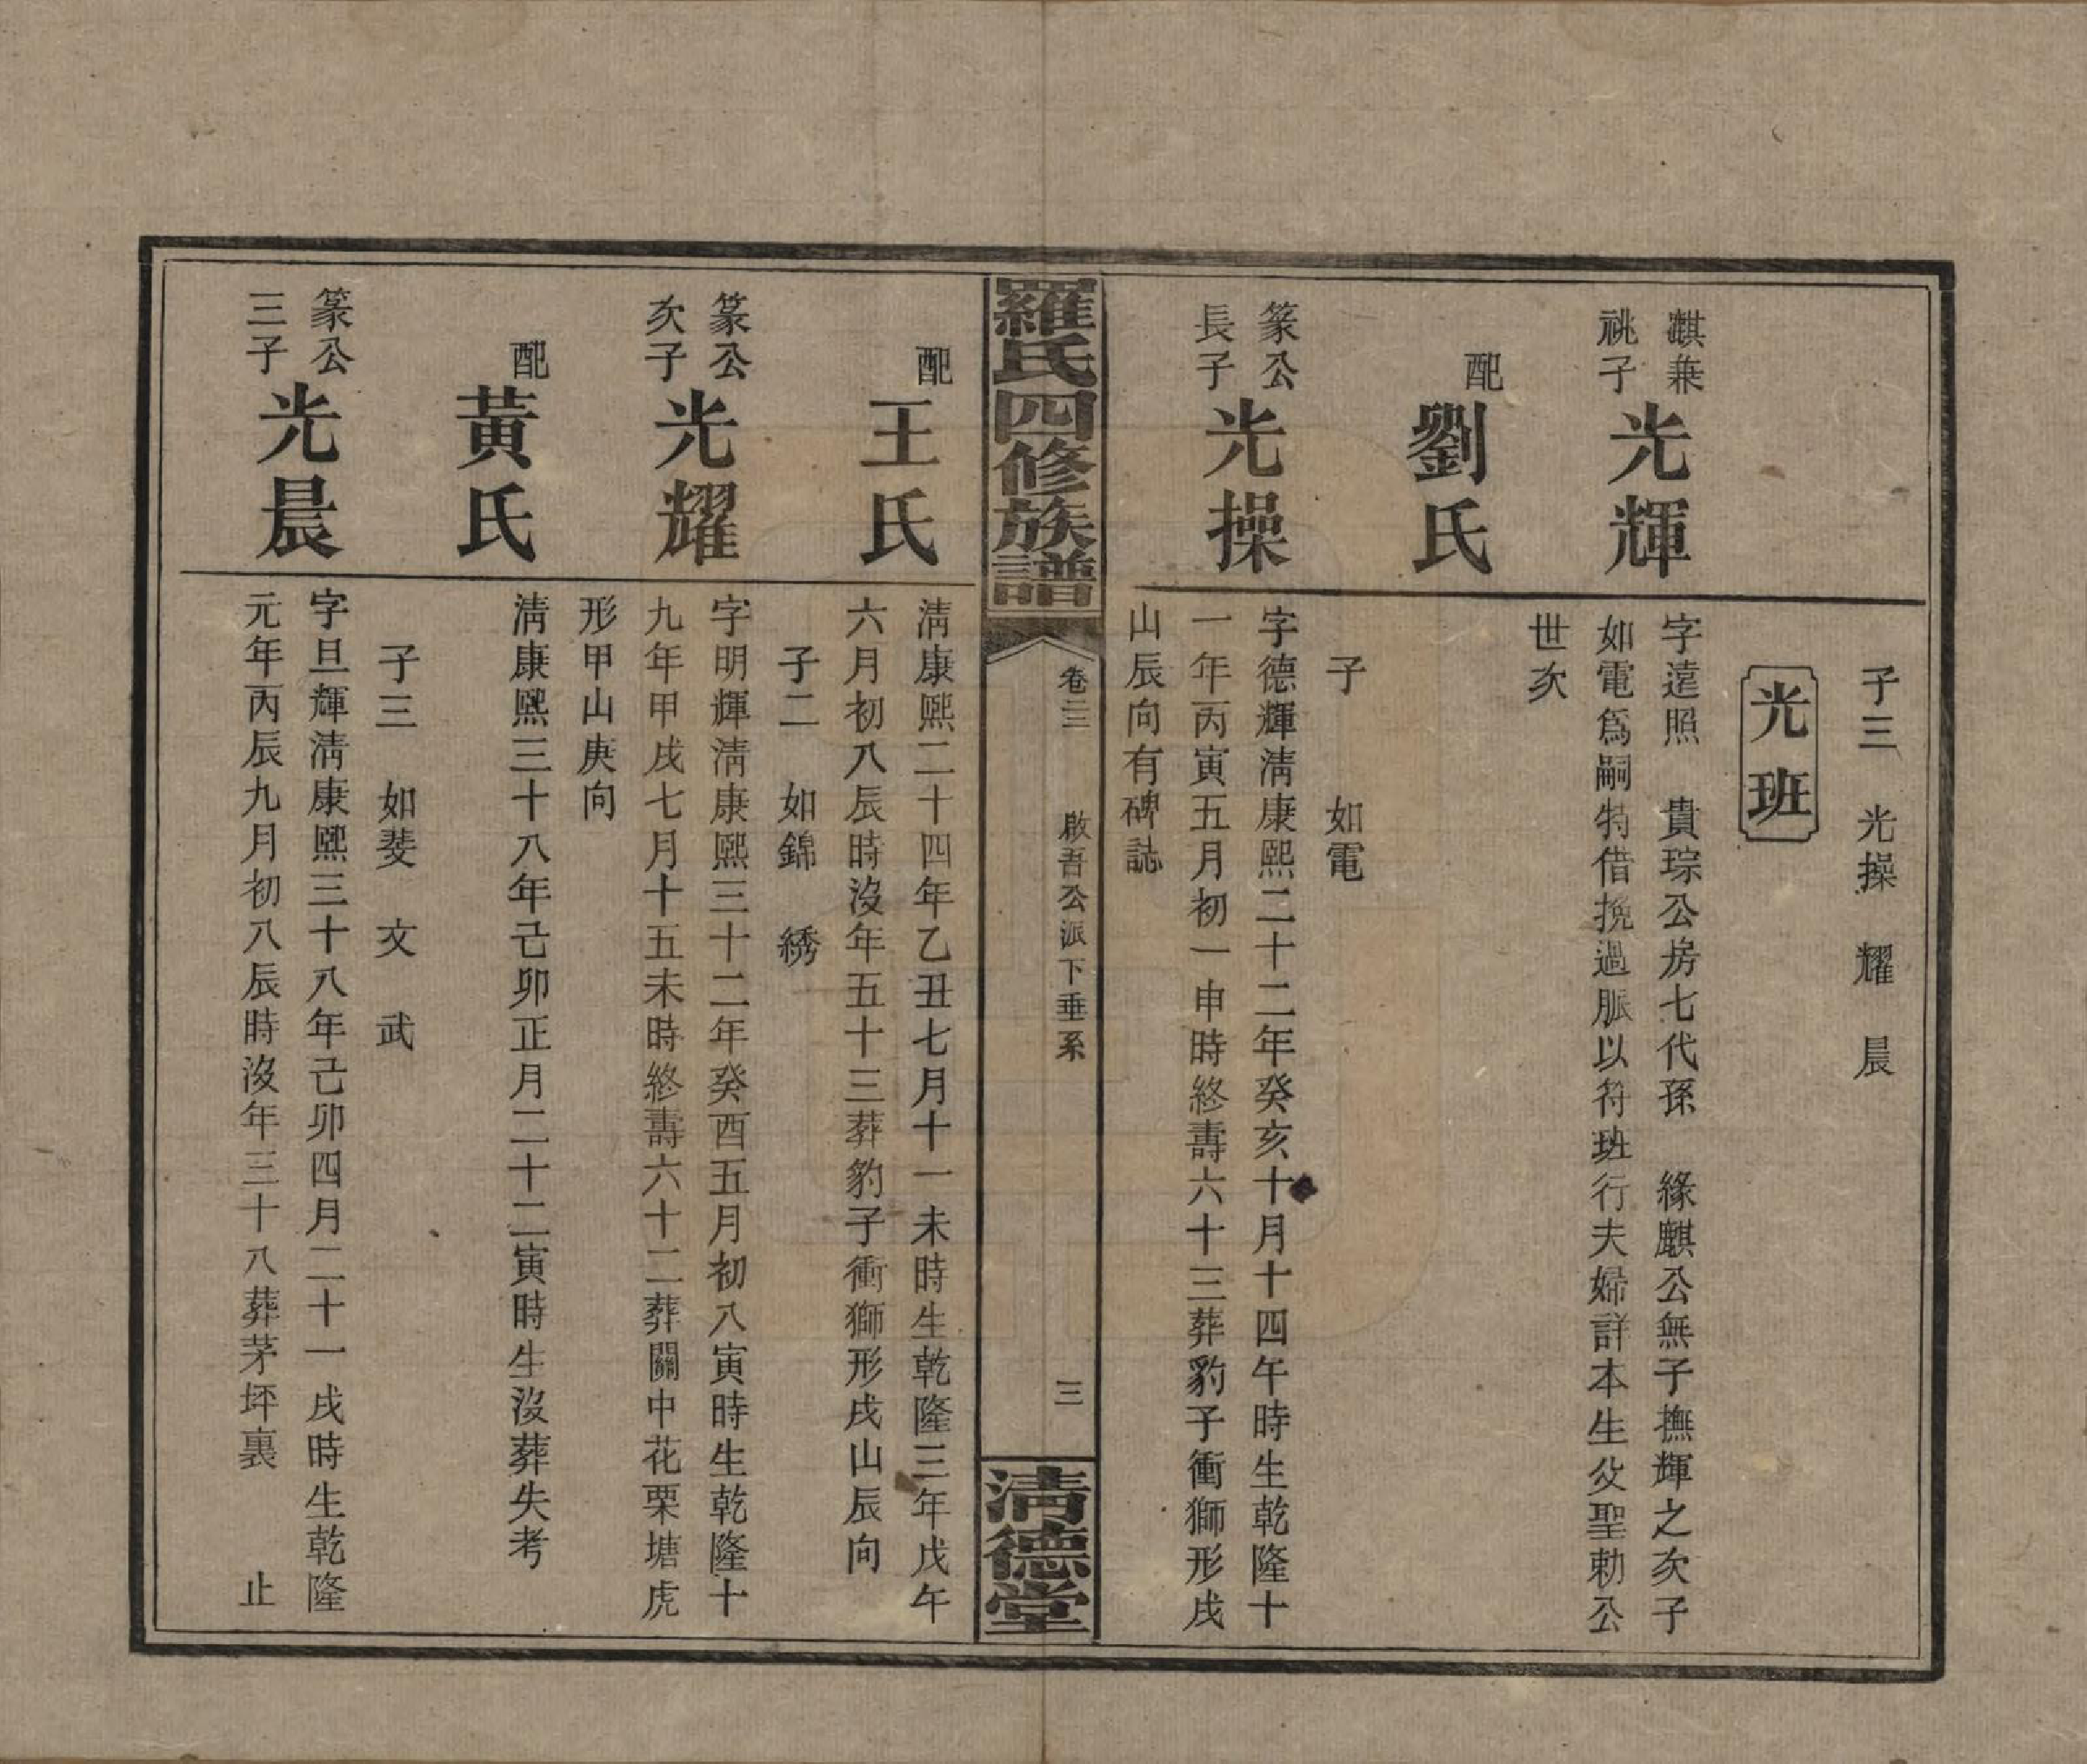 子三　光操　耀　晨
光班
麒兼
祧子
光輝
字遠照　貴琮公房七代孫　緣麒公無子撫輝之次子
如電爲嗣特借挽過脈以符班行夫婦詳本生父聖勅公
世次
配
劉氏
子　　如電
篆公
長子
光操
字德輝淸康熙二十二年癸亥十月十四午時生乾隆十
一年丙寅五月初一申時終壽六十三葬豹子衝獅形戌
山辰向有碑誌
羅氏四修族譜
卷二三　啟吾公派下垂系　三
淸德堂
配
王氏
淸康熙二十四年乙丑七月十一未時生乾隆三年戊午
六月初八辰時沒年五十三葬豹子衝獅形戌山辰向
子二　如錦　綉
篆公
次子
光耀
字明輝淸康熙三十二年癸酉五月初八寅時生乾隆十
九年甲戌七月十五未時終壽六十二葬關中花栗塘虎
形甲山庚向
配
黃氏
淸康熙三十八年己卯正月二十二寅時生沒葬失考
子三　如斐　文　武
篆公
三子
光晨
字旦輝淸康熙三十八年己卯四月二十一戌時生乾隆
元年丙辰九月初八辰時沒年三十八葬茅坪裏　　止